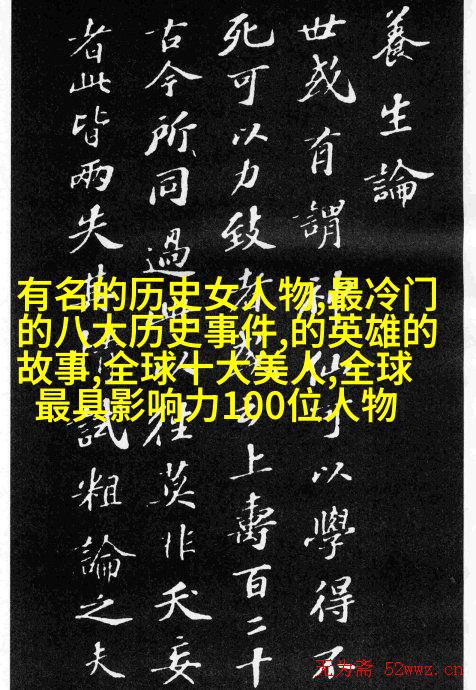 養生論
世或有謂神仙可以學得不
死可以力致者或云上壽百二十
古今所同過此以往莫非夭妄
者此皆兩失其情試粗論之夫
有名的历史女人物,最冷门
的八大历史事件,的英雄的
故事,全球十大美人,全球
最具影响力100位人物
无为斋 52wwz.cn